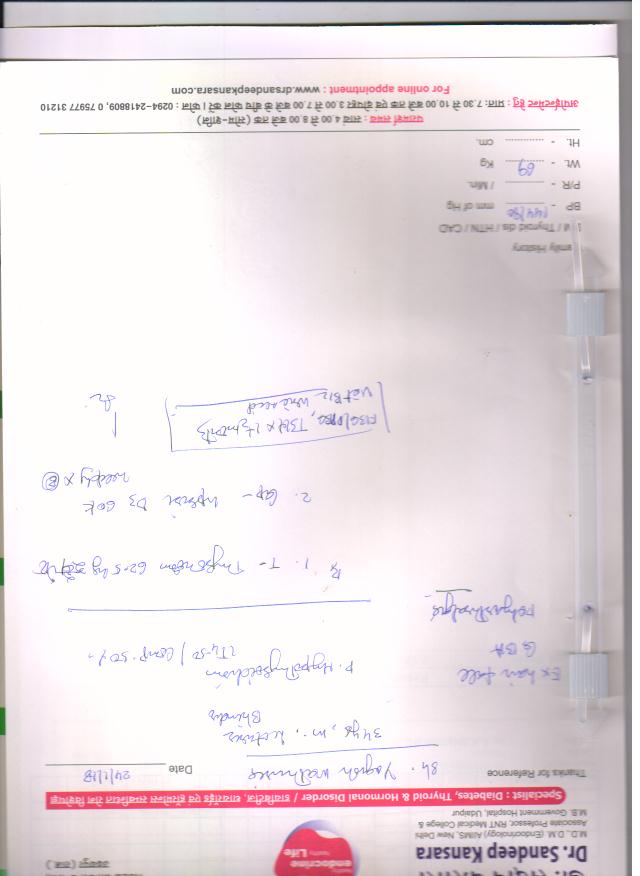 उदयपुर (राज.)
Dr. Sandeep Kansara
M.D., D.M. (Endocrinology) AIIMS, New Delhi
Associate Professor, RNT Medical College &
M.B. Government Hospital, Udaipur
endocrine
Life
Specialist : Diabetes, Thyroid & Hormonal Disorder / डायबिटीज, थायरॉईड एवं हॉर्मोन्स सम्बन्धित रोग विशेषज्ञ
Thanks for Reference
Date 24/1/18
34 yr, m. Lecturer
Bhinder
P. Hypothyroidism
Ex hair fall
GBA
Polyarthralgia
Rx 1. T - Thyronorm 62.5
2. Cap - Uprise D3 60K
weekly x 8
TSH x 1½ month
Vit B12
Family History
/ Thyroid dis / HTN / CAD
BP - 144/90 mm of Hg
P/R - / Min.
Wt. - 69 Kg
Ht. - cm.
परामर्श समय : सायं 4.00 से 8.00 बजे तक (सोम-शनि)
अपोईन्टमेन्ट हेतु : प्रातः 7.30 से 10.00 बजे तक एवं दोपहर 3.00 से 7.00 बजे के बीच फोन करें। फोन : 0294-2418809, 0 75977 31210
For online appointment : www.drsrsandeepkansara.com